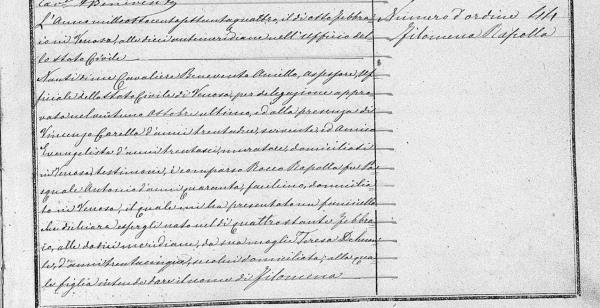 L'Anno mille ottocento settantaquattro, il dì otto Febbra-
io in Venosa, alle dieci antemeridiane nell'Ufficio del-
lo stato Civile
Nanti di me Cavaliere Benvenuto Aniello, Assessore, Uf-
ficiale dello Stato Civile di Venosa, per delegazione appro-
vata nel ventuno Ottobre ultimo, ed alla presenza di
Vincenzo Carella d'anni trentadue, servente, ed Amico
Evangelista d'anni trentasei, muratore, domiciliati
in Venosa, testimoni, è comparso Rocco Rapolla fu Pa-
squale Antonio d'anni quaranta, domicilia-
to in Venosa, il quale mi ha presentato un
che dichiara essergli nato nel dì quattro stante Febbra-
io, alle dodici meridiane, da sua moglie Teresa
d'anni trentacinque, seco lui domiciliata; alla qua-
le figlia intende dare il nome di Filomena
Numero d'ordine 44
Filomena Rapolla